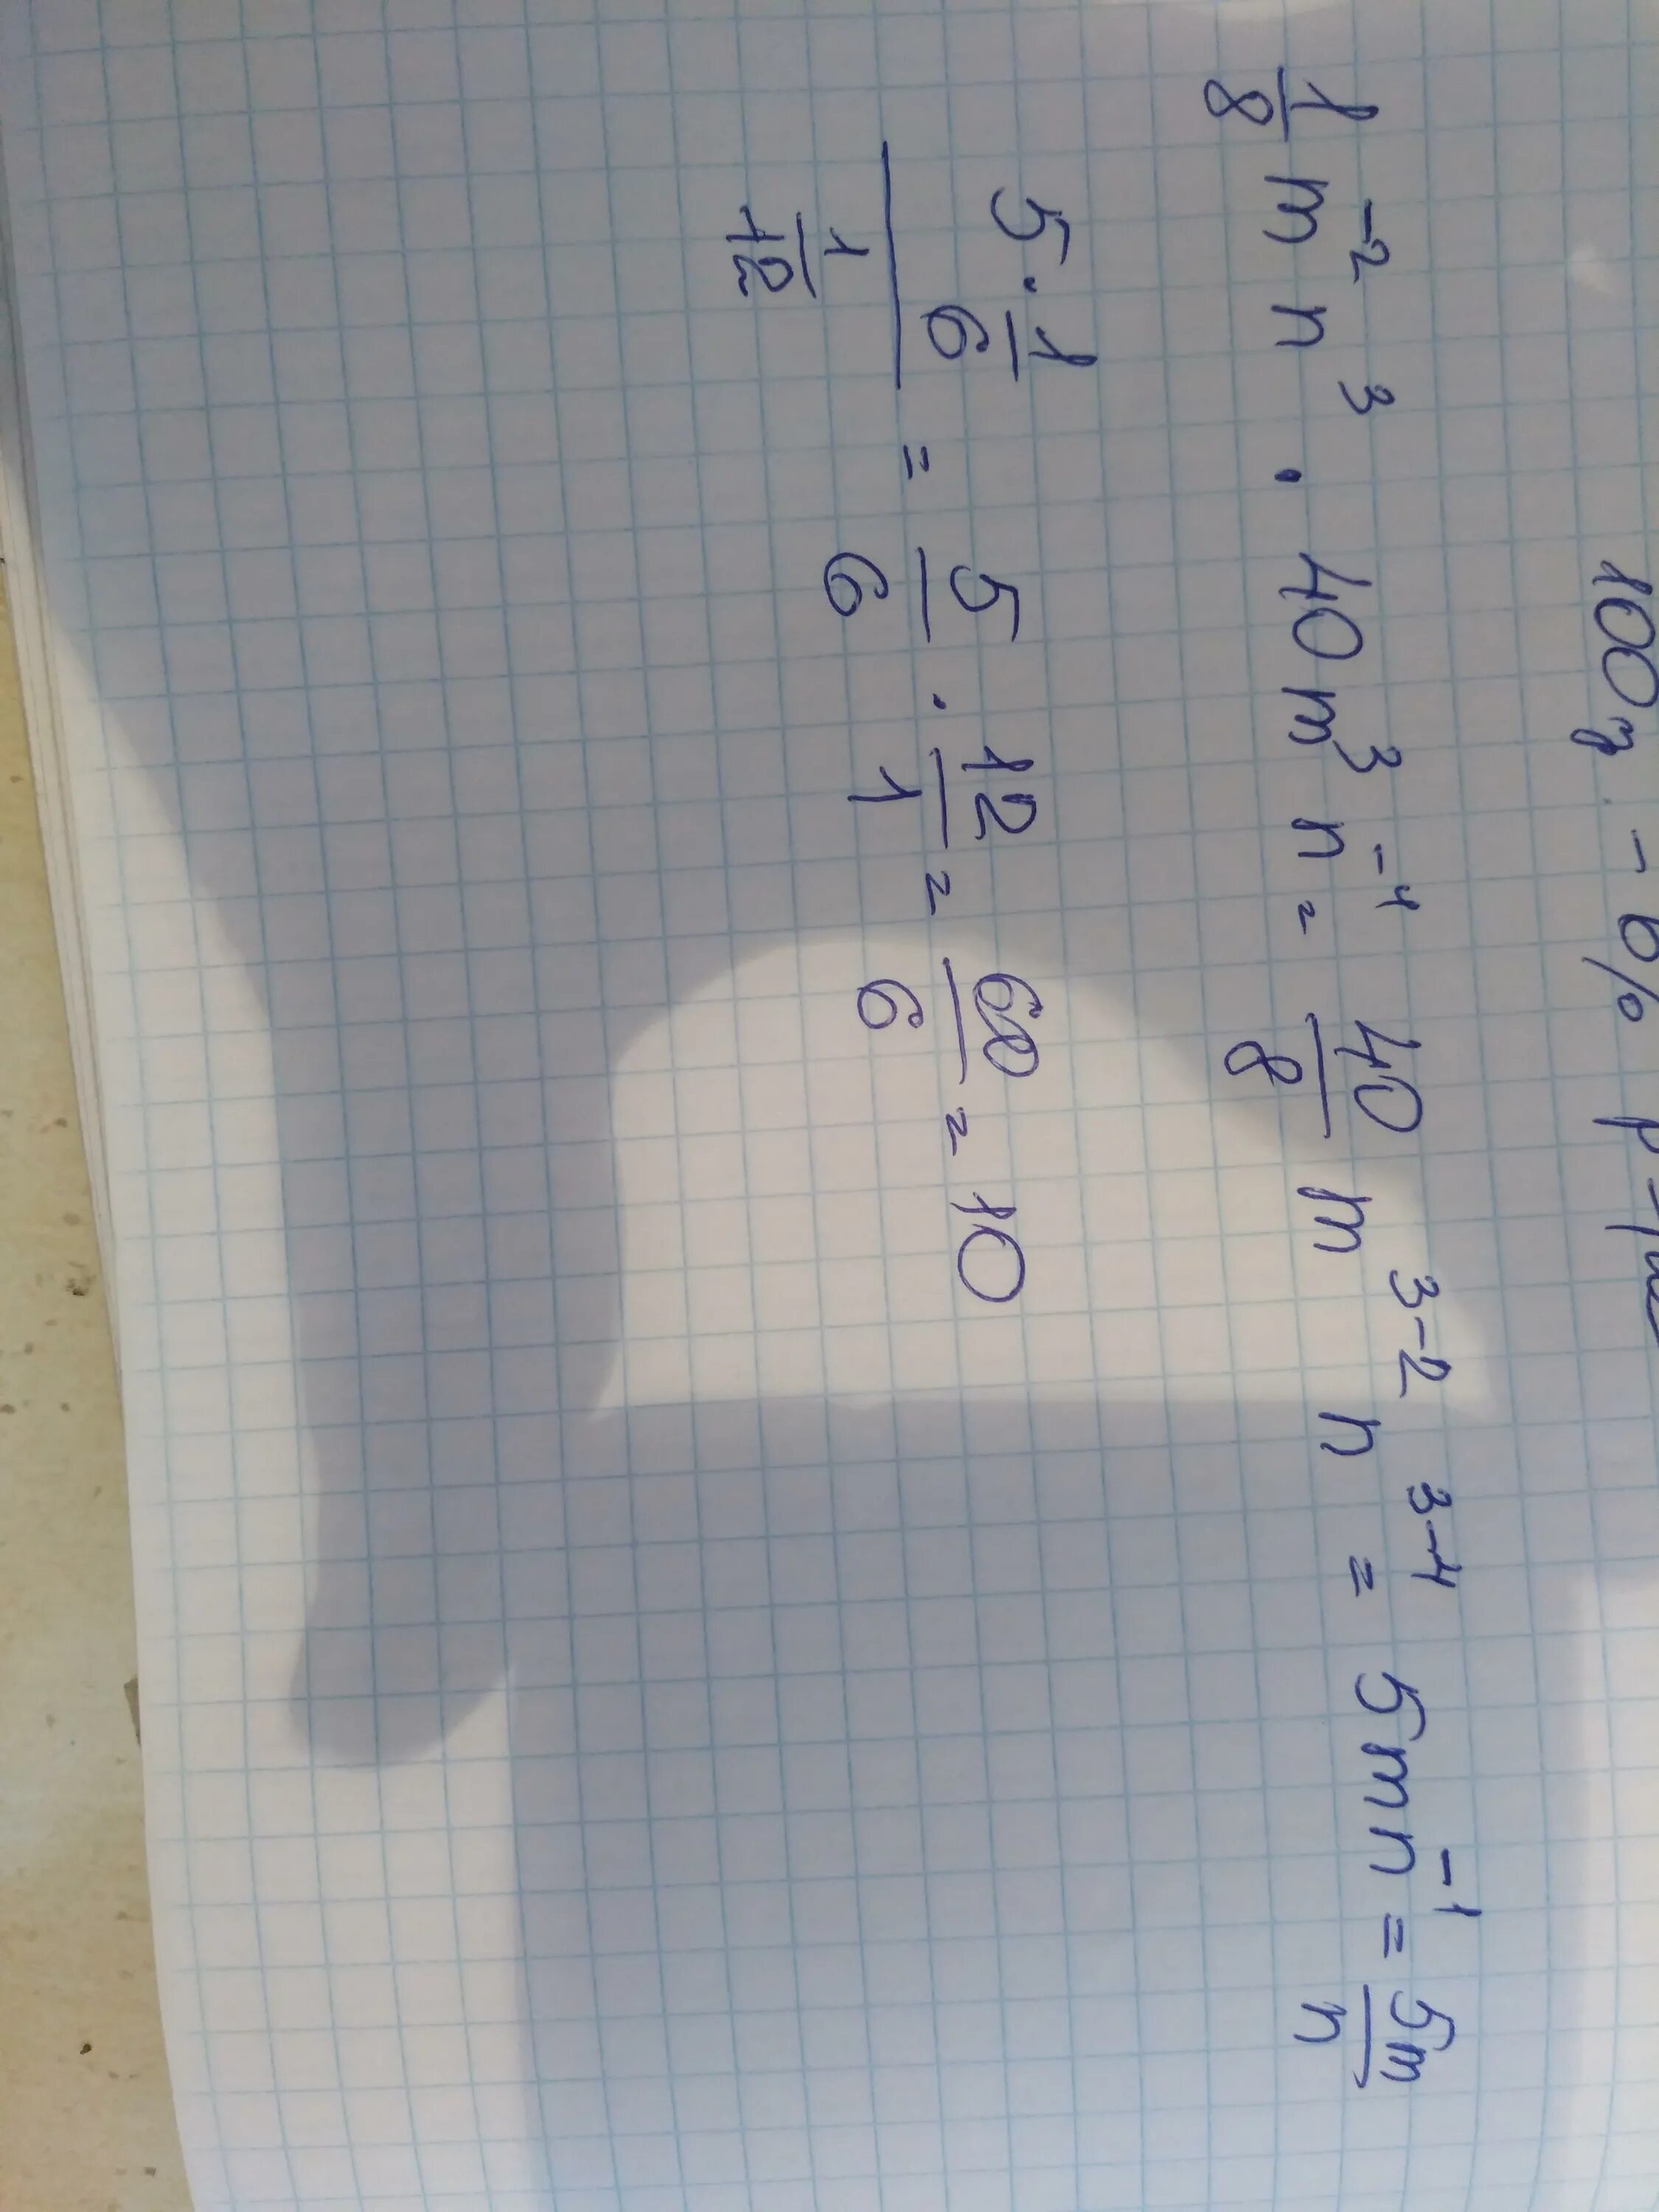 100g - 6%
\frac{1}{8} m^{-2} n^{3} \cdot 40 m^{3} n^{-4} = \frac{40}{8} m^{3-2} n^{3-4} = 5 m n^{-1} = \frac{5m}{n}
\frac{5 \cdot \frac{1}{6}}{\frac{1}{12}} = \frac{5}{6} \cdot \frac{12}{1} = \frac{60}{6} = 10